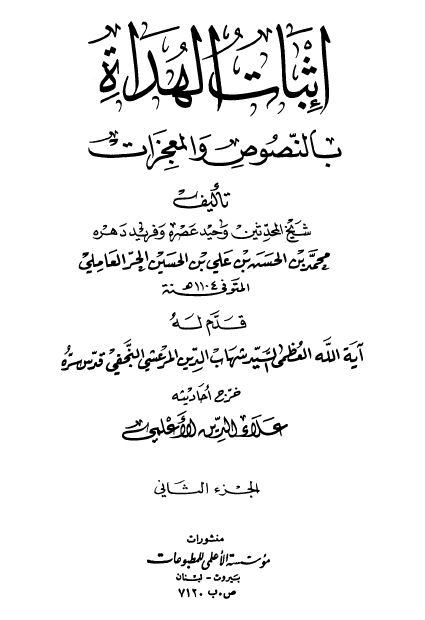 إثبات الهداة
بالنصوص والمعجزات
تأليف
شيخ المحدثين وحيد عصره وفريد دهره
محمد بن الحسن بن علي بن الحسين الحر العاملي
المتوفى ١١٠٤ هـ سنة
قدم له
آية الله العظمى السيد شهاب الدين المرعشي النجفي قدس سره
خرج أحاديثه
علاء الدين الأعلمي
الجزء الثاني
منشورات
مؤسسة الأعلمي للمطبوعات
بيروت - لبنان
ص.ب ٧١٢٠